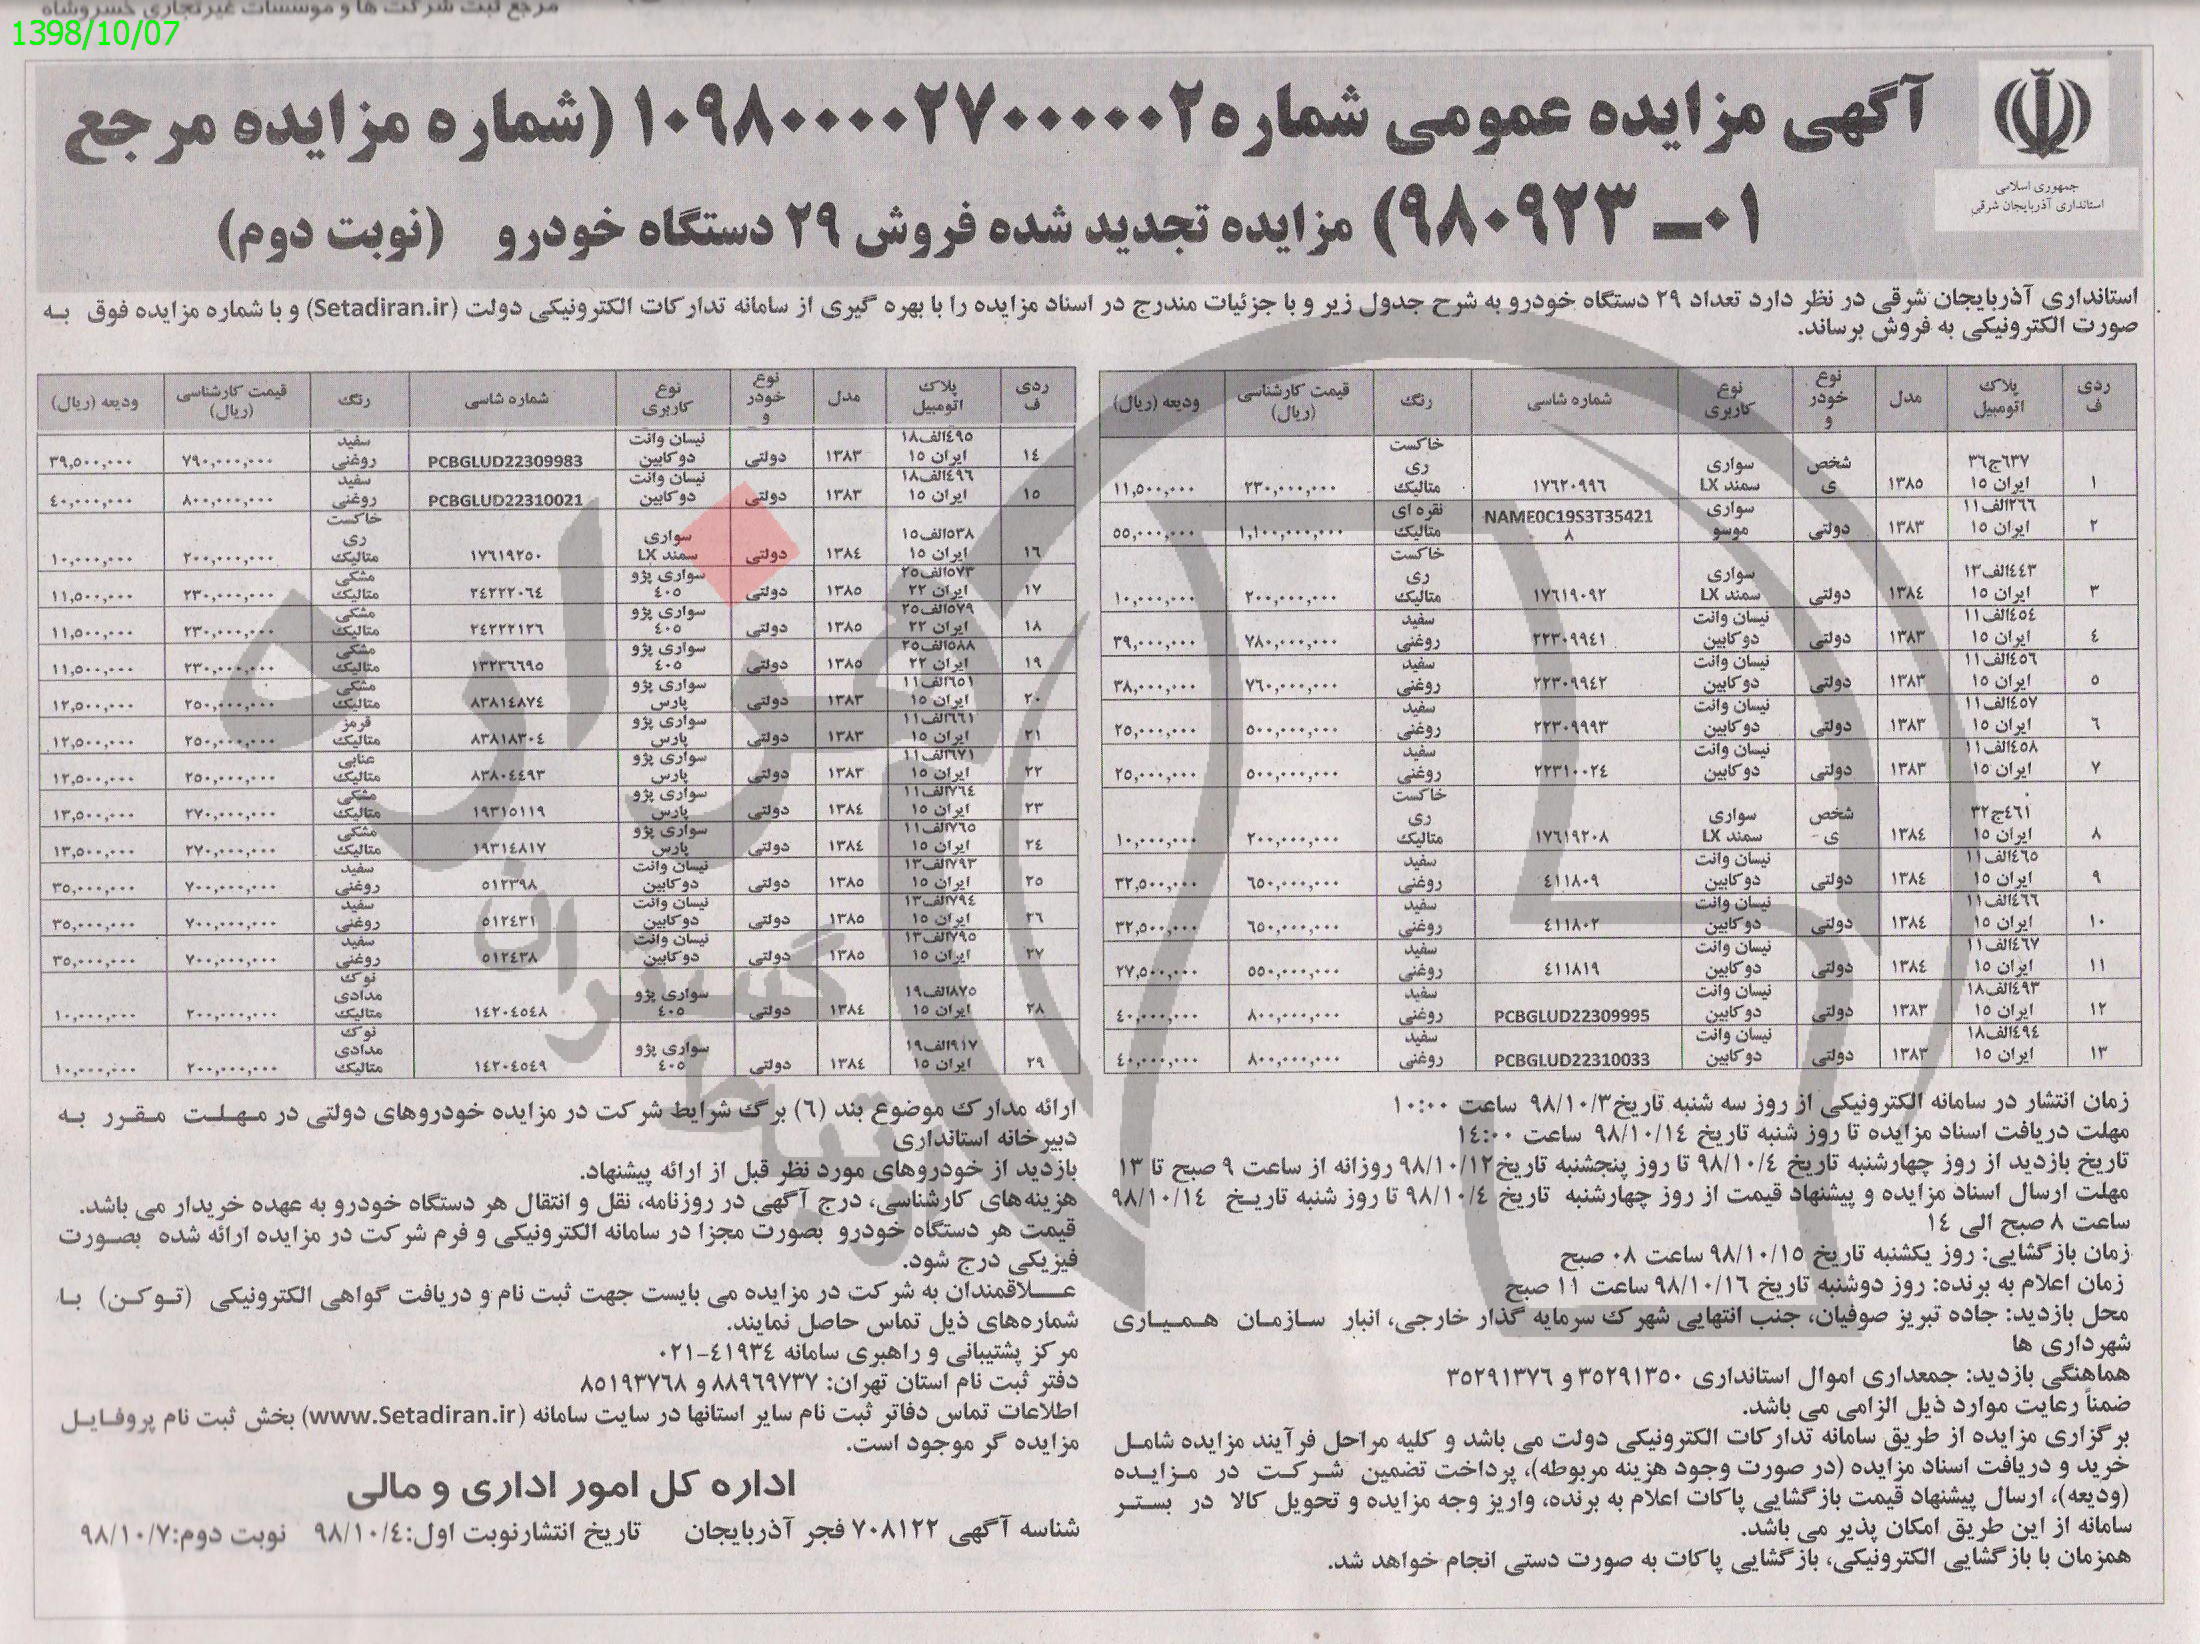 مرجع ثبت شرکت ها و موسسات غیرتجاری خسروشاه
1398/10/07
جمهوری اسلامی
استانداری آذربایجان شرقی
آگهی مزایده عمومی شماره ۱۰۹۸۰۰۰۰۲۷۰۰۰۰۰۲ (شماره مزایده مرجع
۰۱ـ ۹۸۰۹۲۳) مزایده تجدید شده فروش ۲۹ دستگاه خودرو (نوبت دوم)
استانداری آذربایجان شرقی در نظر دارد تعداد ۲۹ دستگاه خودرو به شرح جدول زیر و با جزئیات مندرج در اسناد مزایده را با بهره گیری از سامانه تدارکات الکترونیکی دولت (Setadiran.ir) و با شماره مزایده فوق به
صورت الکترونیکی به فروش برساند.
ردیف پلاک اتومبیل مدل نوع خودرو نوع کاربری شماره شاسی رنگ قیمت کارشناسی (ریال) ودیعه (ریال)
۱ ۶۳۷ج۳۶ ایران ۱۵ ۱۳۸۵ شخصی سواری سمند LX ۱۷۶۲۰۹۹۶ خاکستری متالیک ۲۳۰,۰۰۰,۰۰۰ ۱۱,۵۰۰,۰۰۰
۲ ۲۶۶الف۱۱ ایران ۱۵ ۱۳۸۳ دولتی سواری موسو NAME0C19S3T35421۸ نقره ای متالیک ۱,۱۰۰,۰۰۰,۰۰۰ ۵۵,۰۰۰,۰۰۰
۳ ۴۴۳الف۱۳ ایران ۱۵ ۱۳۸۴ دولتی سواری سمند LX ۱۷۶۱۹۰۹۲ خاکستری متالیک ۲۰۰,۰۰۰,۰۰۰ ۱۰,۰۰۰,۰۰۰
۴ ۴۵۴الف۱۱ ایران ۱۵ ۱۳۸۳ دولتی نیسان وانت دوکابین ۲۲۳۰۹۹۴۱ سفید روغنی ۷۸۰,۰۰۰,۰۰۰ ۳۹,۰۰۰,۰۰۰
۵ ۴۵۶الف۱۱ ایران ۱۵ ۱۳۸۳ دولتی نیسان وانت دوکابین ۲۲۳۰۹۹۴۲ سفید روغنی ۷۶۰,۰۰۰,۰۰۰ ۳۸,۰۰۰,۰۰۰
۶ ۴۵۷الف۱۱ ایران ۱۵ ۱۳۸۳ دولتی نیسان وانت دوکابین ۲۲۳۰۹۹۹۳ سفید روغنی ۵۰۰,۰۰۰,۰۰۰ ۲۵,۰۰۰,۰۰۰
۷ ۴۵۸الف۱۱ ایران ۱۵ ۱۳۸۳ دولتی نیسان وانت دوکابین ۲۲۳۱۰۰۲۴ سفید روغنی ۵۰۰,۰۰۰,۰۰۰ ۲۵,۰۰۰,۰۰۰
۸ ۴۶۱ج۳۲ ایران ۱۵ ۱۳۸۴ شخصی- سواری سمند LX ۱۷۶۱۹۲۰۸ خاکستری متالیک ۲۰۰,۰۰۰,۰۰۰ ۱۰,۰۰۰,۰۰۰
۹ ۴۶۵الف۱۱ ایران ۱۵ ۱۳۸۴ دولتی نیسان وانت دوکابین ۴۱۱۸۰۹ سفید روغنی ۶۵۰,۰۰۰,۰۰۰ ۳۲,۵۰۰,۰۰۰
۱۰ ۴۶۶الف۱۱ ایران ۱۵ ۱۳۸۴ دولتی نیسان وانت دوکابین ۴۱۱۸۰۲ سفید روغنی ۶۵۰,۰۰۰,۰۰۰ ۳۲,۵۰۰,۰۰۰
۱۱ ۴۶۷الف۱۱ ایران ۱۵ ۱۳۸۴ دولتی نیسان وانت دوکابین ۴۱۱۸۱۹ سفید روغنی ۵۵۰,۰۰۰,۰۰۰ ۲۷,۵۰۰,۰۰۰
۱۲ ۴۹۳الف۱۸ ایران ۱۵ ۱۳۸۳ دولتی نیسان وانت دوکابین PCBGLUD22309995 سفید روغنی ۸۰۰,۰۰۰,۰۰۰ ۴۰,۰۰۰,۰۰۰
۱۳ ۴۹۴الف۱۸ ایران ۱۵ ۱۳۸۳ دولتی نیسان وانت دوکابین PCBGLUD22310033 سفید روغنی ۸۰۰,۰۰۰,۰۰۰ ۴۰,۰۰۰,۰۰۰
ردیف پلاک اتومبیل مدل نوع خودرو نوع کاربری شماره شاسی رنگ قیمت کارشناسی (ریال) ودیعه (ریال)
۱۴ ۴۹۵الف۱۸ ایران ۱۵ ۱۳۸۳ دولتی نیسان وانت دوکابین PCBGLUD22309983 سفید روغنی ۷۹۰,۰۰۰,۰۰۰ ۳۹,۵۰۰,۰۰۰
۱۵ ۴۹۶الف۱۸ ایران ۱۵ ۱۳۸۳ دولتی نیسان وانت دوکابین PCBGLUD22310021 سفید روغنی ۸۰۰,۰۰۰,۰۰۰ ۴۰,۰۰۰,۰۰۰
۱۶ ۵۳۸الف۱۵ ایران ۱۵ ۱۳۸۴ دولتی سواری سمند LX ۱۷۶۱۹۲۵۰ خاکستری متالیک ۲۰۰,۰۰۰,۰۰۰ ۱۰,۰۰۰,۰۰۰
۱۷ ۵۷۳الف۲۵ ایران ۲۲ ۱۳۸۵ دولتی سواری پژو ۴۰۵ ۲۴۲۲۲۰۶۴ مشکی متالیک ۲۳۰,۰۰۰,۰۰۰ ۱۱,۵۰۰,۰۰۰
۱۸ ۵۷۹الف۲۵ ایران ۲۲ ۱۳۸۵ دولتی سواری پژو ۴۰۵ ۲۴۲۲۲۱۲۶ مشکی متالیک ۲۳۰,۰۰۰,۰۰۰ ۱۱,۵۰۰,۰۰۰
۱۹ ۵۸۸الف۲۵ ایران ۲۲ ۱۳۸۵ دولتی سواری پژو ۴۰۵ ۱۳۲۳۶۶۹۵ مشکی متالیک ۲۳۰,۰۰۰,۰۰۰ ۱۱,۵۰۰,۰۰۰
۲۰ ۶۵۱الف۱۱ ایران ۱۵ ۱۳۸۳ دولتی سواری پژو پارس ۸۳۸۱۴۸۷۴ مشکی متالیک ۲۵۰,۰۰۰,۰۰۰ ۱۲,۵۰۰,۰۰۰
۲۱ ۶۶۱الف۱۱ ایران ۱۵ ۱۳۸۳ دولتی سواری پژو پارس ۸۳۸۱۸۳۰۴ قرمز متالیک ۲۵۰,۰۰۰,۰۰۰ ۱۲,۵۰۰,۰۰۰
۲۲ ۶۷۱الف۱۱ ایران ۱۵ ۱۳۸۳ دولتی سواری پژو پارس ۸۳۸۰۴۴۹۳ عنابی متالیک ۲۵۰,۰۰۰,۰۰۰ ۱۲,۵۰۰,۰۰۰
۲۳ ۷۶۴الف۱۱ ایران ۱۵ ۱۳۸۴ دولتی سواری پژو پارس ۱۹۳۱۵۱۱۹ مشکی متالیک ۲۷۰,۰۰۰,۰۰۰ ۱۳,۵۰۰,۰۰۰
۲۴ ۷۶۵الف۱۱ ایران ۱۵ ۱۳۸۴ دولتی سواری پژو پارس ۱۹۳۱۴۸۱۷ مشکی متالیک ۲۷۰,۰۰۰,۰۰۰ ۱۳,۵۰۰,۰۰۰
۲۵ ۷۹۳الف۱۳ ایران ۱۵ ۱۳۸۵ دولتی نیسان وانت دوکابین ۵۱۲۳۹۸ سفید روغنی ۷۰۰,۰۰۰,۰۰۰ ۳۵,۰۰۰,۰۰۰
۲۶ ۷۹۴الف۱۳ ایران ۱۵ ۱۳۸۵ دولتی نیسان وانت دوکابین ۵۱۲۴۳۱ سفید روغنی ۷۰۰,۰۰۰,۰۰۰ ۳۵,۰۰۰,۰۰۰
۲۷ ۷۹۵الف۱۳ ایران ۱۵ ۱۳۸۵ دولتی نیسان وانت دوکابین ۵۱۲۴۳۸ سفید روغنی ۷۰۰,۰۰۰,۰۰۰ ۳۵,۰۰۰,۰۰۰
۲۸ ۸۷۵الف۱۹ ایران ۱۵ ۱۳۸۴ دولتی سواری پژو ۴۰۵ ۱۴۲۰۴۵۴۸ نوک مدادی متالیک ۲۰۰,۰۰۰,۰۰۰ ۱۰,۰۰۰,۰۰۰
۲۹ ۹۱۷الف۱۹ ایران ۱۵ ۱۳۸۴ دولتی سواری پژو ۴۰۵ ۱۴۲۰۴۵۴۹ نوک مدادی متالیک ۲۰۰,۰۰۰,۰۰۰ ۱۰,۰۰۰,۰۰۰
زمان انتشار در سامانه الکترونیکی از روز سه شنبه تاریخ۹۸/۱۰/۳ ساعت ۱۰:۰۰
مهلت دریافت اسناد مزایده تا روز شنبه تاریخ ۹۸/۱۰/۱۴ ساعت ۱۴:۰۰
تاریخ بازدید از روز چهارشنبه تاریخ ۹۸/۱۰/۴ تا روز پنجشنبه تاریخ۹۸/۱۰/۱۲ روزانه از ساعت ۹ صبح تا ۱۳
مهلت ارسال اسناد مزایده و پیشنهاد قیمت از روز چهارشنبه تاریخ ۹۸/۱۰/۴ تا روز شنبه تاریخ ۹۸/۱۰/۱۴
ساعت ۸ صبح الی ۱۴
زمان بازگشایی: روز یکشنبه تاریخ ۹۸/۱۰/۱۵ ساعت ۰۸ صبح
زمان اعلام به برنده: روز دوشنبه تاریخ ۹۸/۱۰/۱۶ ساعت ۱۱ صبح
محل بازدید: جاده تبریز صوفیان، جنب انتهایی شهرک سرمایه گذار خارجی، انبار سازمان همیاری
شهرداری ها
هماهنگی بازدید: جمعداری اموال استانداری ۳۵۲۹۱۳۵۰ و ۳۵۲۹۱۳۷۶
ضمناً رعایت موارد ذیل الزامی می باشد.
برگزاری مزایده از طریق سامانه تدارکات الکترونیکی دولت می باشد و کلیه مراحل فرآیند مزایده شامل
خرید و دریافت اسناد مزایده (در صورت وجود هزینه مربوطه)، پرداخت تضمین شرکت در مزایده
(ودیعه)، ارسال پیشنهاد قیمت بازگشایی پاکات اعلام به برنده، واریز وجه مزایده و تحویل کالا در بستر
سامانه از این طریق امکان پذیر می باشد.
همزمان با بازگشایی الکترونیکی، بازگشایی پاکات به صورت دستی انجام خواهد شد.
ارائه مدارک موضوع بند (۶) برگ شرایط شرکت در مزایده خودروهای دولتی در مهلت مقرر به
دبیرخانه استانداری
بازدید از خودروهای مورد نظر قبل از ارائه پیشنهاد.
هزینه‌های کارشناسی، درج آگهی در روزنامه، نقل و انتقال هر دستگاه خودرو به عهده خریدار می باشد.
قیمت هر دستگاه خودرو بصورت مجزا در سامانه الکترونیکی و فرم شرکت در مزایده ارائه شده بصورت
فیزیکی درج شود.
علاقمندان به شرکت در مزایده می بایست جهت ثبت نام و دریافت گواهی الکترونیکی (توکن) با
شماره‌های ذیل تماس حاصل نمایند.
مرکز پشتیبانی و راهبری سامانه ۴۱۹۳۴-۰۲۱
دفتر ثبت نام استان تهران: ۸۸۹۶۹۷۳۷ و ۸۵۱۹۳۷۶۸
اطلاعات تماس دفاتر ثبت نام سایر استانها در سایت سامانه (www.Setadiran.ir) بخش ثبت نام پروفایل
مزایده گر موجود است.
اداره کل امور اداری و مالی
شناسه آگهی ۷۰۸۱۲۲ فجر آذربایجان تاریخ انتشارنوبت اول:۹۸/۱۰/۴ نوبت دوم:۹۸/۱۰/۷